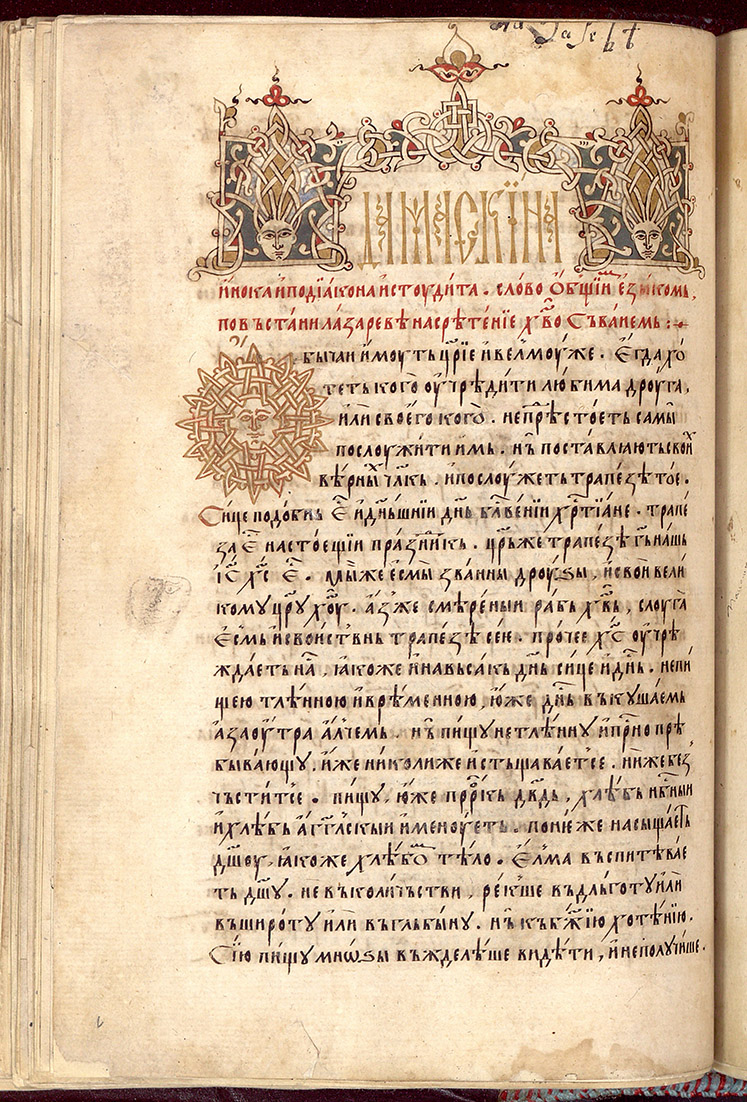 ДАМАСКИНА
и҆нока и҆подїакона и҆стоудита . слово ѻ҆бщїи е҆зикомь ,
по въстани лазаревѣ на срѣтенїе хв҃о съ ванемь :
Ѻ҆бычаи и҆моуть цр҃їе и҆ велмоуже . е҆гда хо
теть кого оу҆чрѣдити любима дроуга ,
и҆ли своего кого . не прѣстоеть самы
послоужити имь . нъ поставлꙗють свои
вѣрныи чл҃кь , и҆ послоужеть трапезѣ тое .
Сице подобнь е҆ и҆ дн҃ьшнїи дн҃ь бл҃гвенїи хр҃тїане . трапе
за е҆ настоещїи празникь . цр҃ь же трапезѣ г҃ь нашь
і҆с҃ х҃с е҆ . мы же е҆смы званны дроуѕы , и҆ свои вели
кому цр҃у х҃оу . а҆з же смѣреныи рабь х҃вь , слоуга
е҆смь и҆ свои ст҃внь трапезѣ сеие . прочее х҃с оу҆чрѣ
ждаеть на , ꙗкоже и҆ на вьсакь дн҃ь сице и҆ дн҃ь . не пи
щею тлѣнною и҆ врѣменною , ю҆же дн҃ь въкушаемь
а҆ заоутра а҆лчемь . нъ пищу нетлѣнну и҆ присно прѣ
бывающу . и҆же николиже и҆стъщавает се . ниже без
чьстит се . пищу , ю҆же пр҃ркь дв҃дь , хлѣбь нб҃ныи
и҆ хлѣбь а҆гг҃лскыи и҆меноуеть . понюже насыщаеть
дш҃оу , ꙗкоже хлѣбо тѣло . е҆лма въспитѣвае
ть дш҃у . не въ количьстви , рекше въ дльготу и҆ли
въ широту и҆ли въ глъбыну . нъ къ бж҃їю хотѣнїю .
Сїю пищу мнѡѕы въжделѣше видѣти , и҆ не получише .